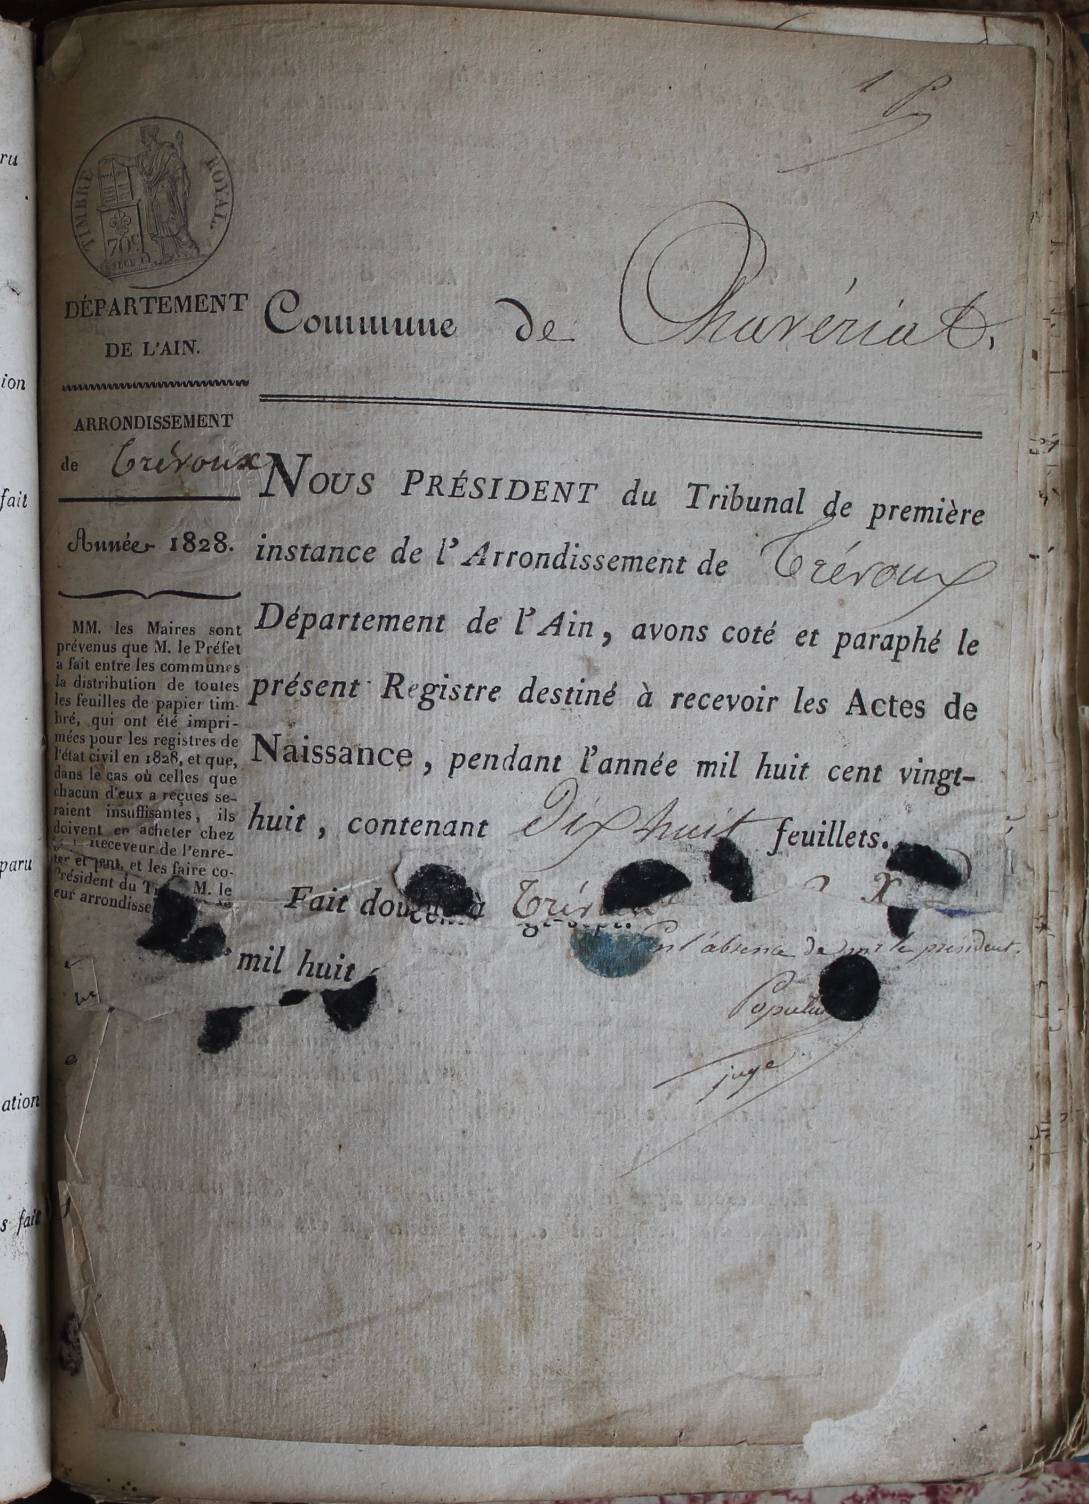 1
TIMBRE ROYAL.
70c
DÉPARTEMENT
DE L'AIN.
Commune de Chavériat.
ARRONDISSEMENT
de Trévoux
Année 1828.
MM. les Maires sont
prévenus que M. le Préfet
a fait entre les communes
la distribution de toutes
les feuilles de papier tim-
bré, qui ont été impri-
mées pour les registres de
l'état civil en 1828, et que,
dans le cas où celles que
chacun d'eux a reçues se-
raient insuffisantes, ils
doivent en acheter chez
Receveur de l'enre-
et les faire co-
Président du M. le
eur arrondisse
NOUS PRÉSIDENT du Tribunal de première
instance de l'Arrondissement de Trévoux
Département de l'Ain, avons coté et paraphé le
présent Registre destiné à recevoir les Actes de
Naissance, pendant l'année mil huit cent vingt-
huit, contenant Dix huit feuillets.
Fait à
mil huit
l'absence de mr le president.
juge
ru
ion
fait
paru
ation
s fait